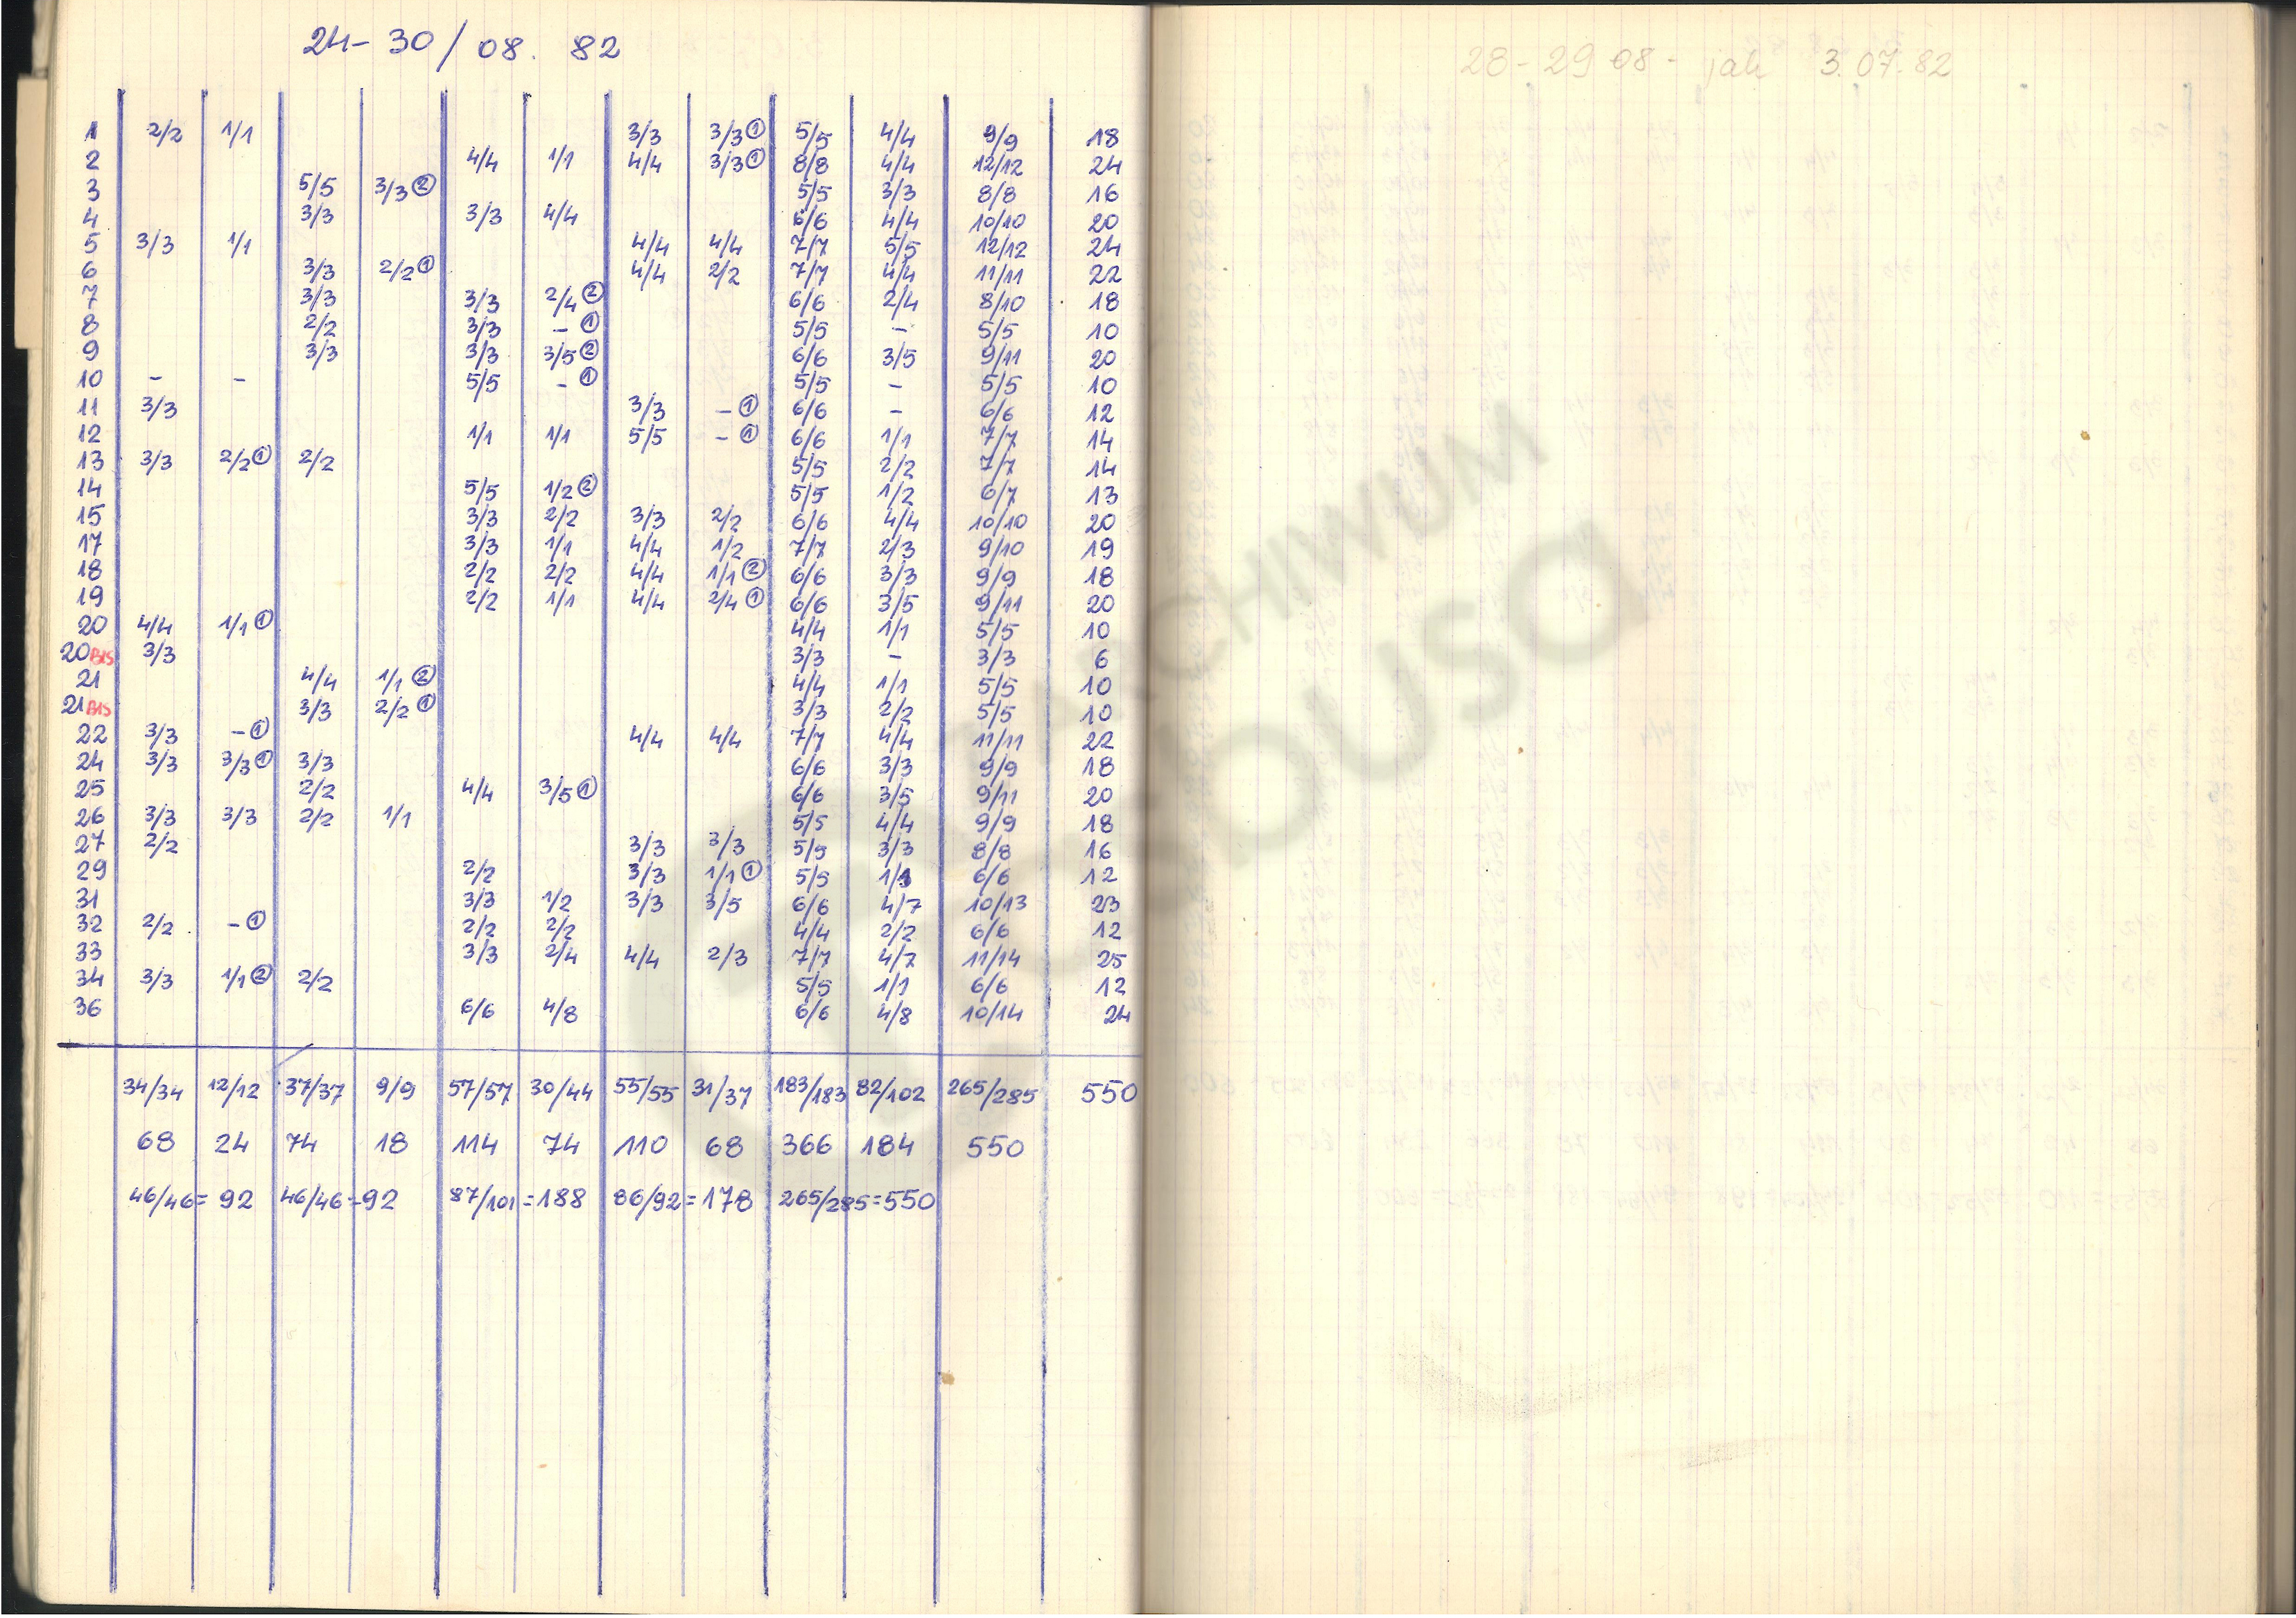 24-30/08. 82
1 2/2 1/1 3/3 3/3 ① 5/5 4/4 9/9 18
2 4/4 1/1 4/4 3/3 ① 8/8 4/4 12/12 24
3 5/5 3/3 ② 5/5 3/3 8/8 16
4 3/3 3/3 4/4 6/6 4/4 10/10 20
5 3/3 1/1 4/4 4/4 7/7 5/5 12/12 24
6 3/3 2/2 ① 4/4 2/2 7/7 4/4 11/11 22
7 3/3 3/3 2/4 ② 6/6 2/4 8/10 18
8 2/2 3/3 - ① 5/5 - 5/5 10
9 3/3 3/3 3/5 ② 6/6 3/5 9/11 20
10 - - 5/5 - ① 5/5 - 5/5 10
11 3/3 3/3 - ① 6/6 - 6/6 12
12 1/1 1/1 5/5 - ① 6/6 1/1 7/7 14
13 3/3 2/2 ① 2/2 5/5 2/2 7/7 14
14 5/5 1/2 ② 5/5 1/2 6/7 13
15 3/3 2/2 3/3 2/2 6/6 4/4 10/10 20
17 3/3 1/1 4/4 1/2 7/7 2/3 9/10 19
18 2/2 2/2 4/4 1/1 ② 6/6 3/3 9/9 18
19 2/2 1/1 4/4 2/4 ① 6/6 3/5 9/11 20
20 4/4 1/1 ① 4/4 1/1 5/5 10
20 BIS 3/3 3/3 - 3/3 6
21 4/4 1/1 ② 4/4 1/1 5/5 10
21 BIS 3/3 2/2 ① 3/3 2/2 5/5 10
22 3/3 - ① 4/4 4/4 7/7 4/4 11/11 22
24 3/3 3/3 ① 3/3 6/6 3/3 9/9 18
25 2/2 4/4 3/5 ① 6/6 3/5 9/11 20
26 3/3 3/3 2/2 1/1 5/5 4/4 9/9 18
27 2/2 3/3 3/3 5/5 3/3 8/8 16
29 2/2 3/3 1/1 ① 5/5 1/1 6/6 12
31 3/3 1/2 3/3 3/5 6/6 4/7 10/13 23
32 2/2 - ① 2/2 2/2 4/4 2/2 6/6 12
33 3/3 2/4 4/4 2/3 7/7 4/7 11/14 25
34 3/3 1/1 ② 2/2 5/5 1/1 6/6 12
36 6/6 4/8 6/6 4/8 10/14 24
34/34 12/12 37/37 9/9 57/57 30/44 55/55 31/37 183/183 82/102 265/285 550
68 24 74 18 114 74 110 68 366 184 550
46/46= 92 46/46=92 87/101=188 86/92=178 265/285=550
28-29 08- jak 3.07.82
ARCHIWUM